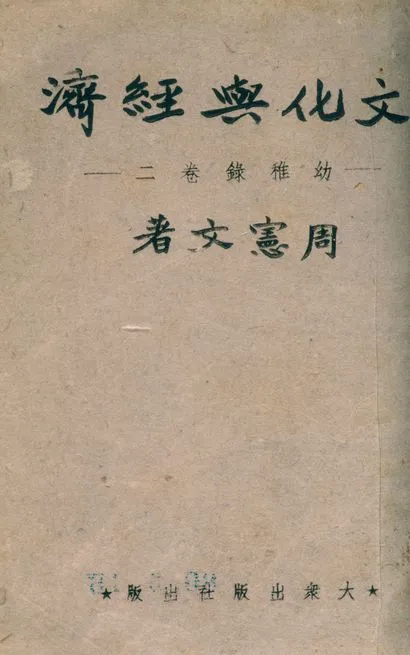 文化與經濟
——幼稚錄卷二——
周憲文著
★大眾出版社出版★